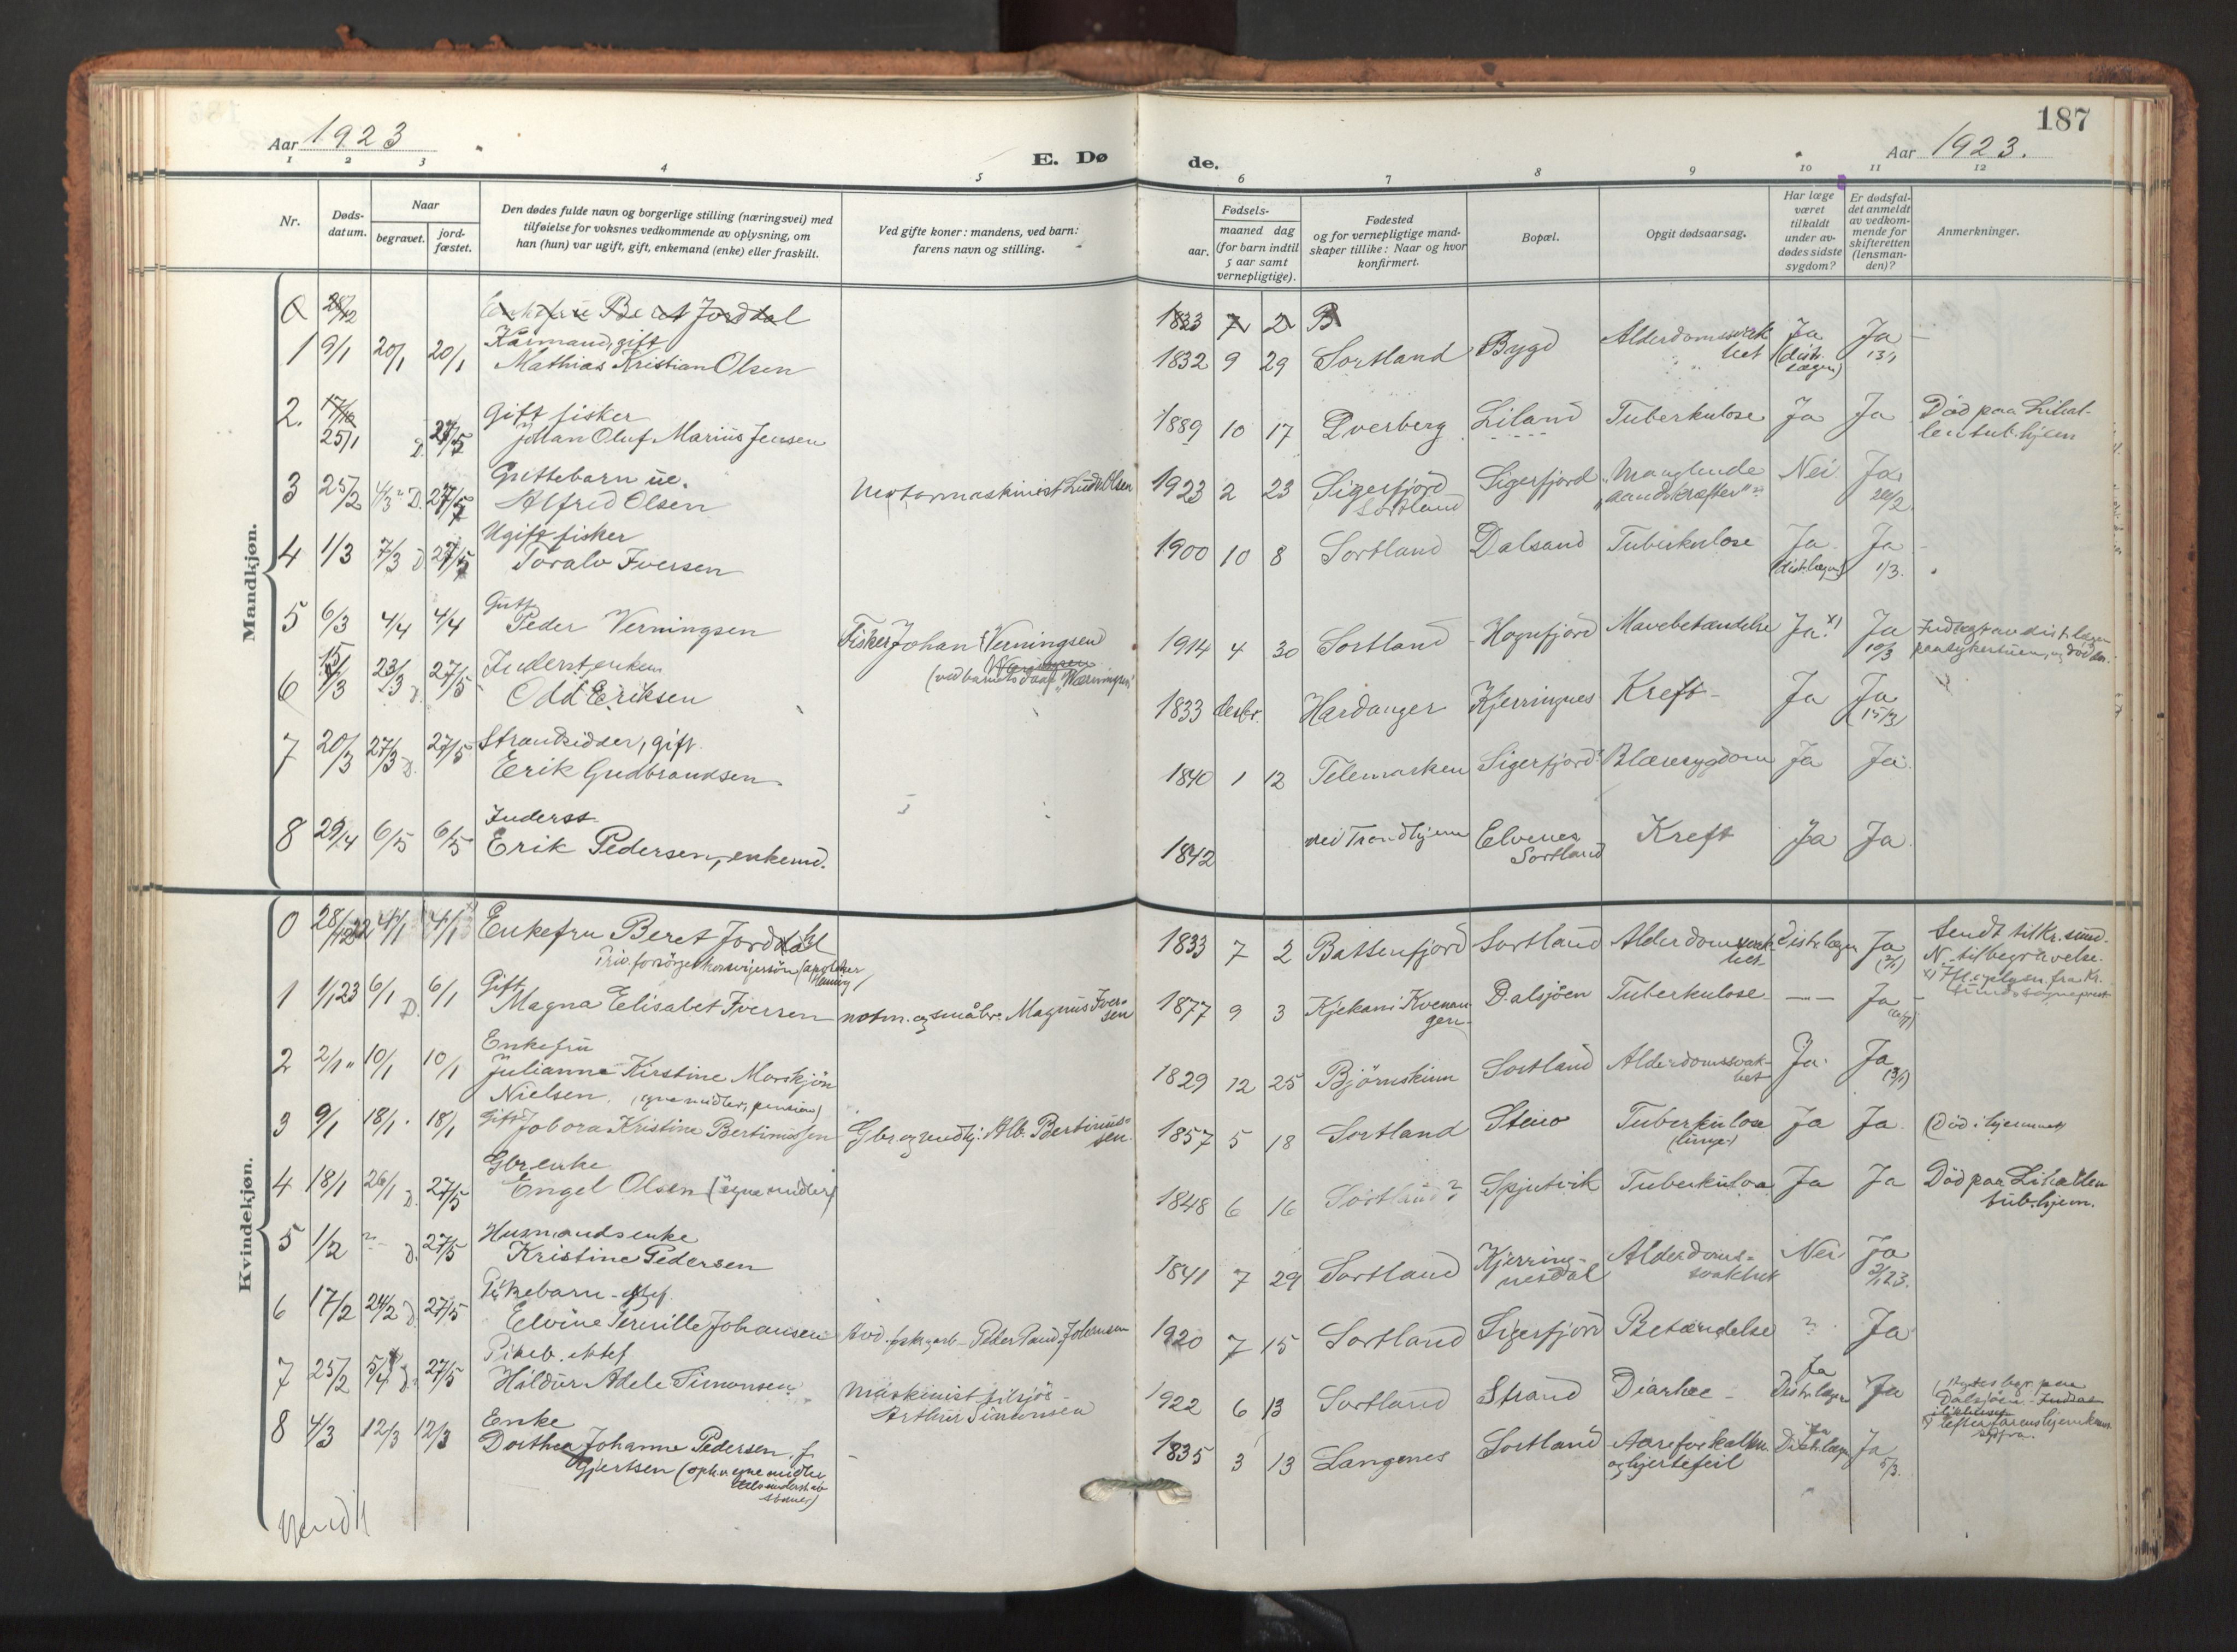 187
Aar 1923
E. Dø
de.
Aar 1923.
1 2 3 4 5 6 7 8 9 10 11 12
Nr.
Døds-
datum.
Naar
begravet.
jord-
fæstet.
Den dødes fulde navn og borgerlige stilling (næringsvei) med
tilføielse for voksnes vedkommende av oplysning, om
han (hun) var ugift, gift, enkemand (enke) eller fraskilt.
Ved gifte koner: mandens, ved barn:
farens navn og stilling.
Fødsels-
aar.
maaned dag
(for barn indtil
5 aar samt
vernepligtige).
Fødested
og for vernepligtige mand-
skaper tillike: Naar og hvor
konfirmert.
Bopæl.
Opgit dødsaarsag.
Har læge
været
tilkaldt
under av-
dødes sidste
sygdom?
Er dødsfal-
det anmeldt
av vedkom-
mende for
skifteretten
(lensman-
den)?
Anmerkninger.
Mandkjøn.
28/12 Enkefru Beret Jorddal 1833 7 2 B
Kaarmand, gift
1 9/1 20/1 20/1 Mathias Kristian Olsen 1832 9 29 Sortland Bygd Alderdomssvak
het Ja
(distr.
lægen) Ja
13/1
2. 25/1 D. 27/5 Gift fisker
Johan Oluf Marius Jensen 1889 10 17 Dverberg Liland Tuberkulose Ja Ja Död paa Lihal-
len tub.hjem
3 25/2 4/3 D. 27/5 Guttebarn ue.
Alfred Olsen Motormaskinist Ludv. Olsen 1923 2 23 Sigerfjord
Sortland Sigerfjord "Manglende
aandskræfter" Nei Ja
26/2
4 1/3 7/3 D 27/5 Ugift fisker
Toralv Iversen 1900 10 8 Sortland Dalsand Tuberkulose Ja
(distr.lægen) Ja
1/3.
5 6/3 4/4 4/4 Gutt
Peder Verningsen Fisker Johan Verningsen 1914 4 30 Sortland Hognfjord Mavebetændelse Ja x) Ja
10/3 Indlagt av distr.lægen
paa sykestuen, og död der.
6 15/3 23/3 D. 27/5 Inderst, enkem.
Odd Eriksen 1833 desbr. Hardanger Kjerringnes Kreft Ja Ja
(15/3)
7 20/3 27/3 D. 27/5 Strandsidder, gift.
Erik Gudbrandsen 1840 1 12 Telemarken Sigerfjord Blæresygdom Ja Ja
8 29/4 6/5 6/5 Inderst
Erik Pedersen, enkemd. 1842 ved Trondhjem Elvenes
Sortland Kreft Ja Ja
Kvindekjøn.
0 28/12 22 4/1 4/1 Enkefru Beret Jorddal
1833 7 2 Battenfjord Sortland Alderdomssvak-
het distr.lægen Ja
(2/1) Sendt til Kr.sund.
N. til begravelse.
1 1/1 23 6/1 D. 6/1 Gift
Magna Elisabet Iversen notm. og småbr. Magnus Iver-
sen 1877 9 3 Kjekan i Kvenan-
gen Dalsjöen Tuberkulose — — Ja
2 2/1 " 10/1 10/1 Enkefru
Julianna Kirstine Morskjön
Nielsen. (egne midler, pension) 1829 12 25 Björnskinn Sortland Alderdomssvak-
het Ja Ja
(3/1)
3 9/1 18/1 18/1 Gift Jobora Kristine Bertinussen Gbr. og Alb. Bertinus-
sen. 1857 5 18 Sortland Steiro Tuberkulose
(lunge) Ja Ja (Död i hjemmet)
4 18/1 26/1 D. 27/5 Gbr.enke
Engel Olsen (egne midler) 1848 6 16 Sortland? Spjutvik Tuberkulose Ja Ja Död paa Lihallen
tub.hjem.
5 1/2 ? D. 27/5 Husmandsenke
Kristine Pedersen 1841 7 29 Sortland Kjerring-
nesdal Alderdoms-
svakhet Nei Ja
2/1 23.
6 17/2 24/2 D. 27/5 Pikebarn
Elvine Pernille Johansen Peder Johansen 1920 7 15 Sortland Sigerfjord Betændelse ? Ja
7 25/2 5/4 D. 27/5 Pikeb. ektef
Haldur Adele Simonsen Maskinist tilsjös
Arthur Simonsen 1922 6 13 Sortland Strand Diarhe Ja
Distr.lægen Ja
8 4/3 12/3 12/3 Enke
Dorthea Johanne Pedersen f.
Gjertsen 1835 3 13 Langenes Sortland Aareforkalkn.
og hjertefeil Ja
Distr.lægen Ja
5/3.